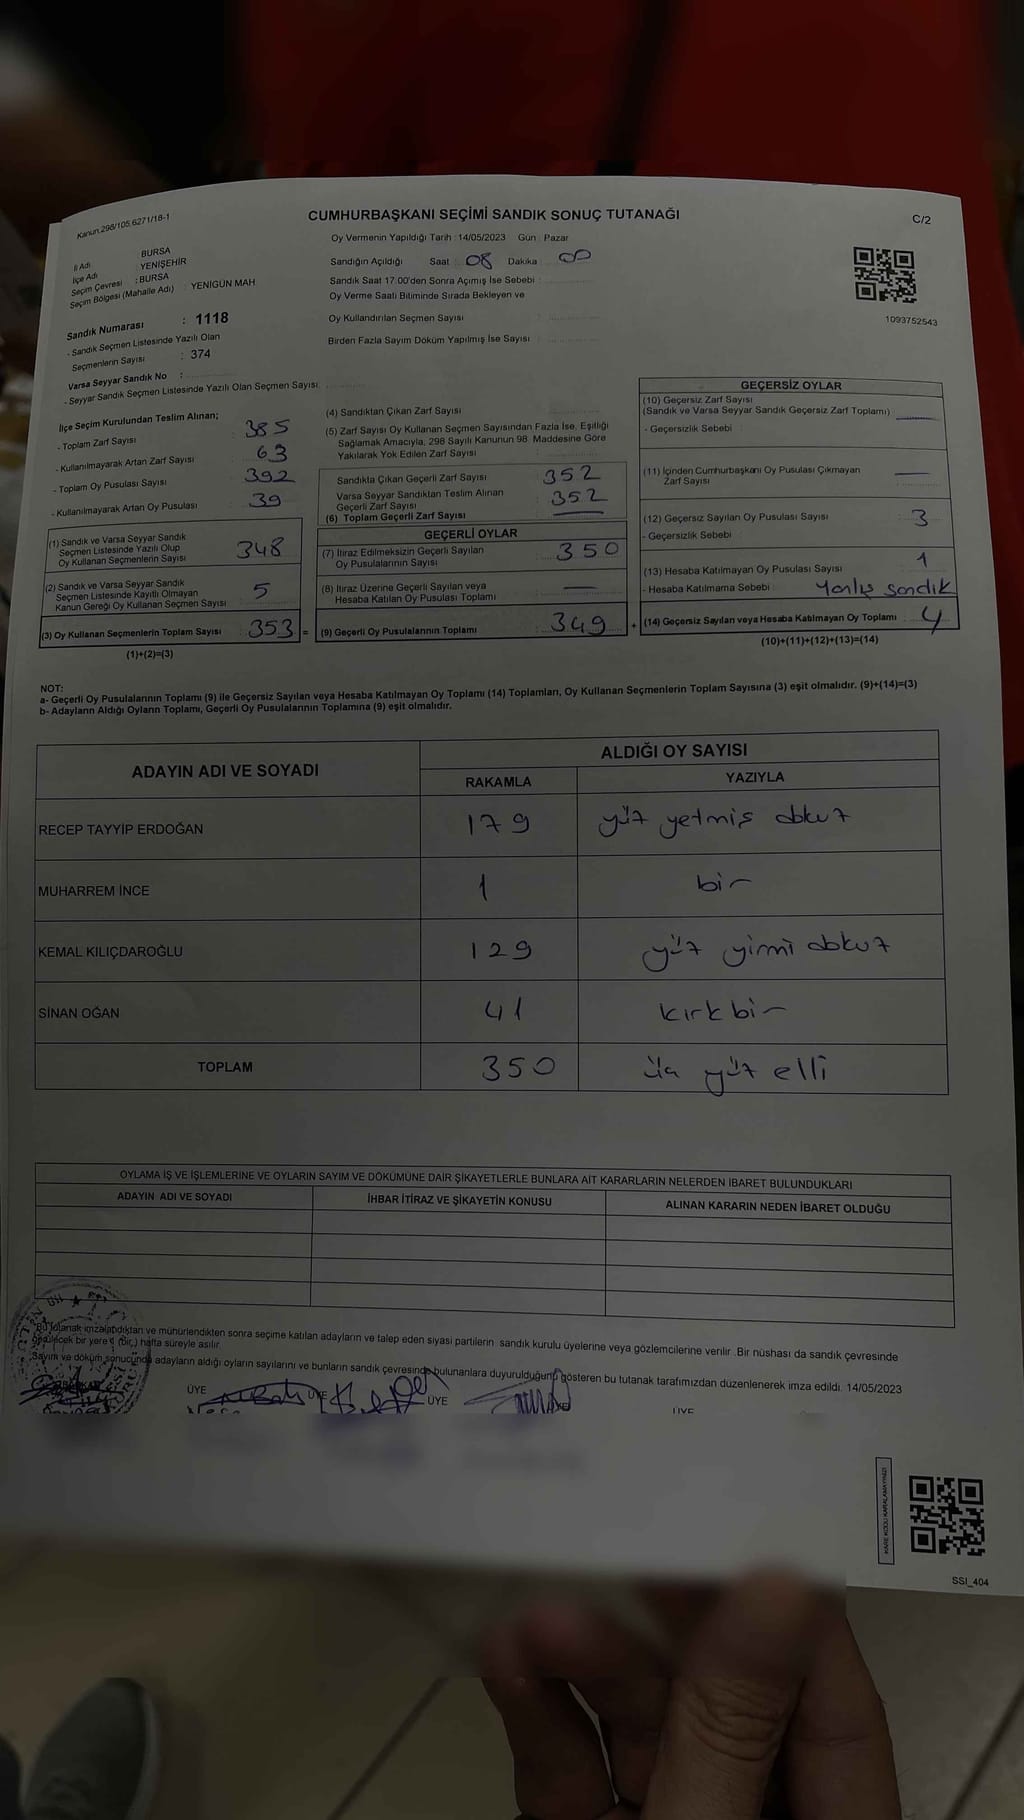 Kanun.298/105,6271/18-1
CUMHURBAŞKANI SEÇİMİ SANDIK SONUÇ TUTANAĞI
C/2
Oy Vermenin Yapıldığı Tarih : 14/05/2023 Gün : Pazar
İl Adı : BURSA
İlçe Adı : YENİŞEHİR
Seçim Çevresi : BURSA
Seçim Bölgesi (Mahalle Adı) : YENİGÜN MAH
Sandığın Açıldığı Saat : 08 Dakika : 00
Sandık Saat 17:00'den Sonra Açımış İse Sebebi :
Oy Verme Saati Bitiminde Sırada Bekleyen ve
Oy Kullandırılan Seçmen Sayısı :
Birden Fazla Sayım Döküm Yapılmış İse Sayısı :
1093752543
Sandık Numarası : 1118
- Sandık Seçmen Listesinde Yazılı Olan
Seçmenlerin Sayısı : 374
Varsa Seyyar Sandık No :
- Seyyar Sandık Seçmen Listesinde Yazılı Olan Seçmen Sayısı:
İlçe Seçim Kurulundan Teslim Alınan;
- Toplam Zarf Sayısı : 385
- Kullanılmayarak Artan Zarf Sayısı : 63
- Toplam Oy Pusulası Sayısı : 392
- Kullanılmayarak Artan Oy Pusulası : 39
(1) Sandık ve Varsa Seyyar Sandık
Seçmen Listesinde Yazılı Olup
Oy Kullanan Seçmenlerin Sayısı : 348
(2) Sandık ve Varsa Seyyar Sandık
Seçmen Listesinde Kayıtlı Olmayan
Kanun Gereği Oy Kullanan Seçmen Sayısı : 5
(3) Oy Kullanan Seçmenlerin Toplam Sayısı : 353 =
(1)+(2)=(3)
(4) Sandıktan Çıkan Zarf Sayısı :
(5) Zarf Sayısı Oy Kullanan Seçmen Sayısından Fazla İse, Eşitliği
Sağlamak Amacıyla, 298 Sayılı Kanunun 98. Maddesine Göre
Yakılarak Yok Edilen Zarf Sayısı :
Sandıkta Çıkan Geçerli Zarf Sayısı : 352
Varsa Seyyar Sandıktan Teslim Alınan
Geçerli Zarf Sayısı : 352
(6) Toplam Geçerli Zarf Sayısı :
GEÇERLİ OYLAR
(7) İtiraz Edilmeksizin Geçerli Sayılan
Oy Pusulalarının Sayısı : 350
(8) İtiraz Üzerine Geçerli Sayılan veya
Hesaba Katılan Oy Pusulası Toplamı : —
(9) Geçerli Oy Pusulalarının Toplamı : 349 +
GEÇERSİZ OYLAR
(10) Geçersiz Zarf Sayısı
(Sandık ve Varsa Seyyar Sandık Geçersiz Zarf Toplamı) : —
- Geçersizlik Sebebi :
(11) İçinden Cumhurbaşkanı Oy Pusulası Çıkmayan
Zarf Sayısı : —
(12) Geçersiz Sayılan Oy Pusulası Sayısı : 3
- Geçersizlik Sebebi :
(13) Hesaba Katılmayan Oy Pusulası Sayısı : 1
- Hesaba Katılmama Sebebi : Yanlış sandık
(14) Geçersiz Sayılan veya Hesaba Katılmayan Oy Toplamı : 4
(10)+(11)+(12)+(13)=(14)
NOT:
a- Geçerli Oy Pusulalarının Toplamı (9) ile Geçersiz Sayılan veya Hesaba Katılmayan Oy Toplamı (14) Toplamları, Oy Kullanan Seçmenlerin Toplam Sayısına (3) eşit olmalıdır. (9)+(14)=(3)
b- Adayların Aldığı Oyların Toplamı, Geçerli Oy Pusulalarının Toplamına (9) eşit olmalıdır.
ADAYIN ADI VE SOYADI ALDIĞI OY SAYISI
RAKAMLA YAZIYLA
RECEP TAYYİP ERDOĞAN 179 yüz yetmiş dokuz
MUHARREM İNCE 1 bir
KEMAL KILIÇDAROĞLU 129 yüz yirmi dokuz
SİNAN OĞAN 41 kırkbir
TOPLAM 350 üç yüz elli
OYLAMA İŞ VE İŞLEMLERİNE VE OYLARIN SAYIM VE DÖKÜMÜNE DAİR ŞİKAYETLERLE BUNLARA AİT KARARLARIN NELERDEN İBARET BULUNDUKLARI
ADAYIN ADI VE SOYADI İHBAR İTİRAZ VE ŞİKAYETİN KONUSU ALINAN KARARIN NEDEN İBARET OLDUĞU
Bu tutanak imzalandıktan ve mühürlendikten sonra seçime katılan adayların ve talep eden siyasi partilerin sandık kurulu üyelerine veya gözlemcilerine verilir. Bir nüshası da sandık çevresinde
görülecek bir yere 1 (bir) hafta süreyle asılır.
Sayım ve döküm sonucunda adayların aldığı oyların sayılarını ve bunların sandık çevresinde bulunanlara duyurulduğunu gösteren bu tutanak tarafımızdan düzenlenerek imza edildi. 14/05/2023
BAŞKAN ÜYE ÜYE ÜYE ÜYE ÜYE
KARE KODU KARALAMAYINIZ!
SSI_404